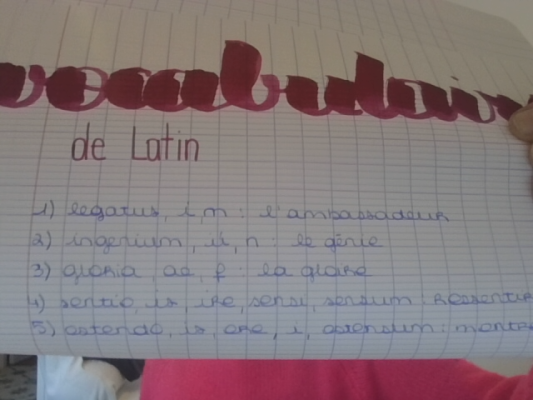 vocabulair
de Latin
1) legatus, i, m : l'ambassadeur
2) ingenium, ii, n : le génie
3) gloria, ae, f : la gloire
4) sentio, is, ire, sensi, sensum : ressentir
5) ostendo, is, ere, i, ostensum : montre